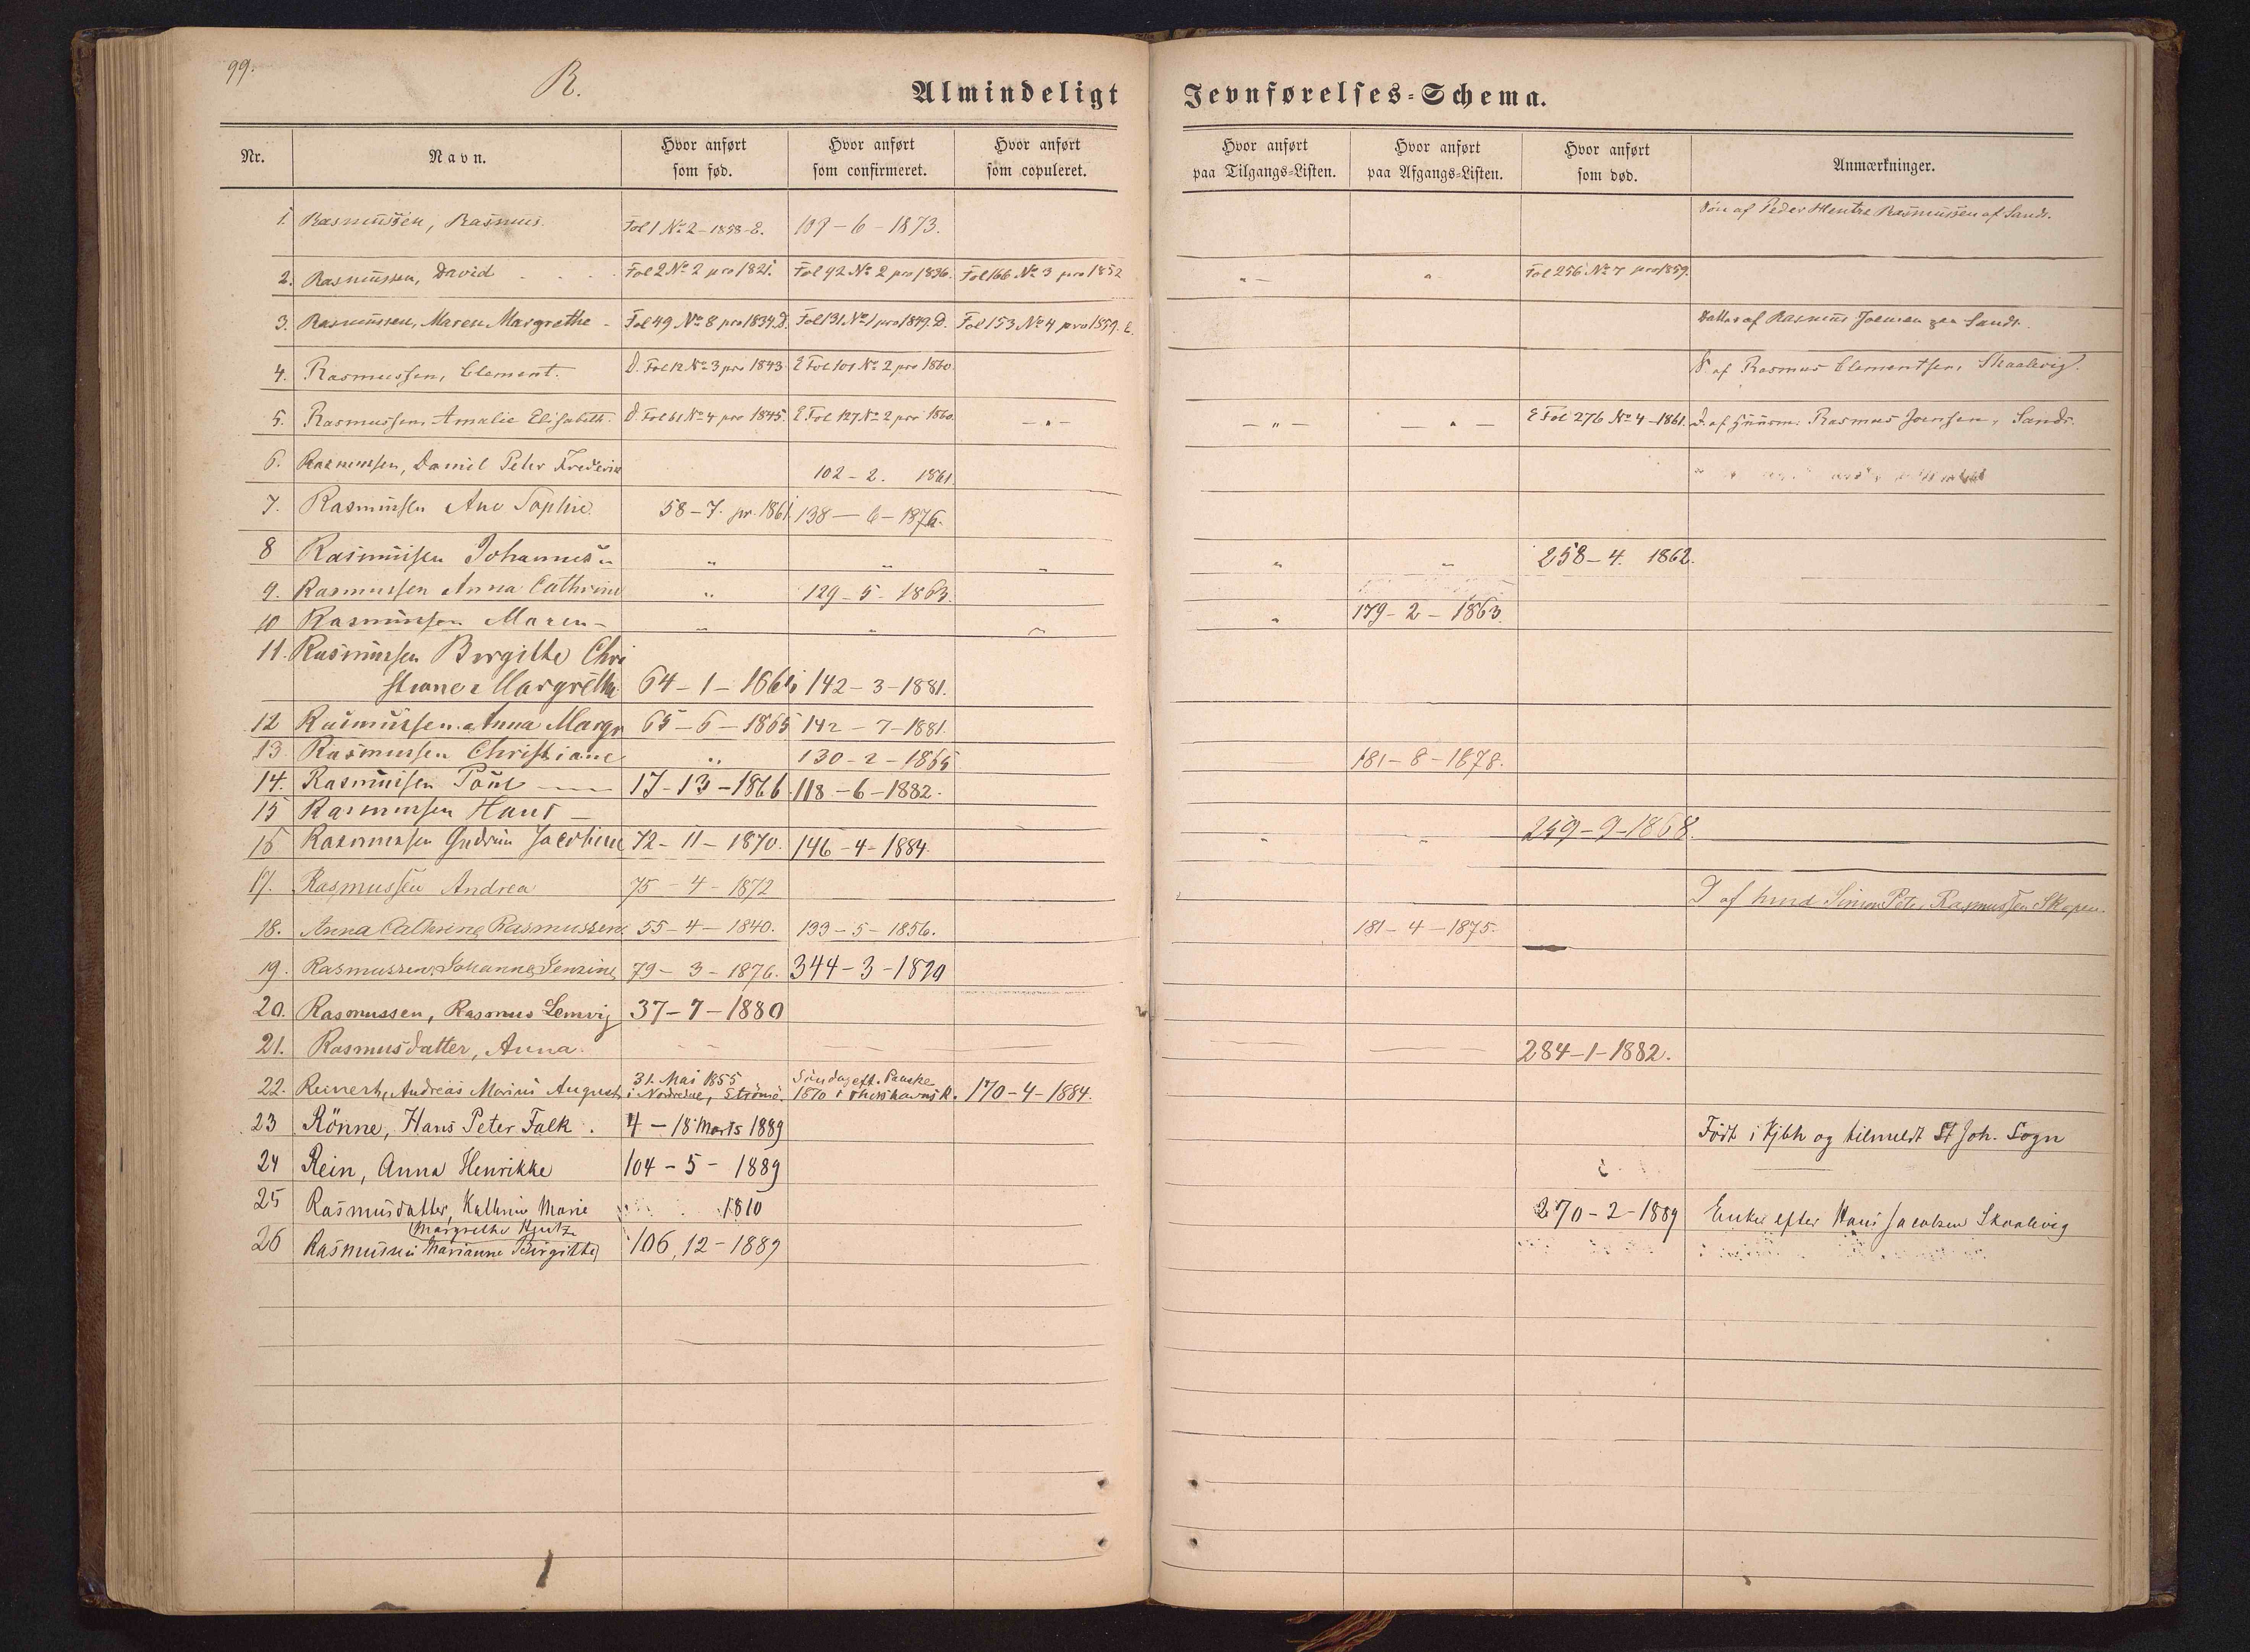 99.
R.
Almindeligt Jevnførelses-Schema.
Nr. Navn. Hvor anført som fød. Hvor anført som confirmeret. Hvor anført som copuleret. Hvor anført paa Tilgangs-Listen. Hvor anført paa Afgangs-Listen. Hvor anført som død. Anmærkninger.
1. Rasmussen, Rasmus. Fol 1 No 2-1858-E. 107-6-1873. Søn af Peder Rasmussen af Sand.
2. Rasmussen, David Fol 2 No 2 pro 1821. Fol 92 No 2 pro 1836. Fol 166 No 3 pro 1852 " - " Fol 256 No 7 pro 1859.
3. Rasmussen, Maren Margrethe - Fol 49 No 8 pro 1834. D. Fol 131. No 1 pro 1849. D. Fol 153 No 4 pro 1859. E. Datter af Rasmus Joensen paa Sand.
4. Rasmussen, Clement. D. Fol 12 No 3 pro 1843 E Fol 101 No 2 pro 1860. S. af Rasmus Clementsen, Skaalevig.
5. Rasmussen, Amalie Elisabeth. D Fol 61 No 4 pro 1845. E Fol 127 No 2 pro 1860. - " - - " - - " - E Fol 276 No 4-1861. D. af Huusm. Rasmus Joensen, Sand.
6. Rasmussen, Daniel Peter Frederik 102-2. 1861.
7. Rasmussen Ane Sophie. 58-7. pr. 1861. 138-6-1876.
8 Rasmussen Johannes " " " " " " 258-4. 1862.
9. Rasmussen Anna Cathrine " 129-5-1863.
10 Rasmussen Maren - " " " " 179-2-1863.
11. Rasmussen Birgitte Chri
stiane Margrethe 64-1-1865 142-3-1881.
12 Rasmussen Anna Margr 65-6-1865 142-7-1881.
13. Rasmussen Christiane " 130-2-1865 181-8-1878.
14. Rasmussen Poul 17-13-1866. 118-6-1882.
15 Rasmussen Hans - " " 259-9-1868.
16 Rasmussen Gudrun Jacobine 72-11-1870. 146-4-1884.
17. Rasmussen Andrea 75-4-1872 D af Simon Peter Rasmussen Skopen.
18. Anna Cathrine Rasmussen 55-4-1840. 133-5-1856. 181-4-1875.
19. Rasmussen, Johanne Jensine 79-3-1876. 344-3-1890
20. Rasmussen, Rasmus Lemvig 37-7-1880
21. Rasmusdatter, Anna. 284-1-1882.
22. Reinert, Andreas Marius August 31. Mai 1855 i Nordredal, Strömö. Söndag eft. Paaske 1870 i Thorshavns K. 170-4-1884.
23 Rönne, Hans Peter Falk. 4-18 Marts 1889 Födt i Kjbh og tilmeldt St Joh. Sogn
24 Rein, Anna Henrikke 104-5-1889
25 Rasmusdatter, Kathrine Marie 1810 270-2-1889 Enke efter Hans Jacobsen Skaalevig
Margrethe
26 Rasmussen Marianne Birgitte 106, 12-1889